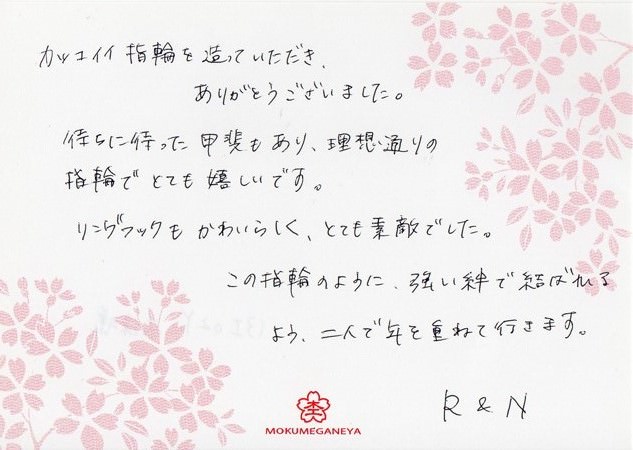 カッコイイ指輪を造っていただき、
ありがとうございました。
待ちに待った甲斐もあり、理想通りの
指輪でとても嬉しいです。
リングフックもかわいらしく、とても素敵でした。
この指輪のように、強い絆で結ばれる
よう、二人で年を重ねて行きます。
R & N
MOKUMEGANEYA